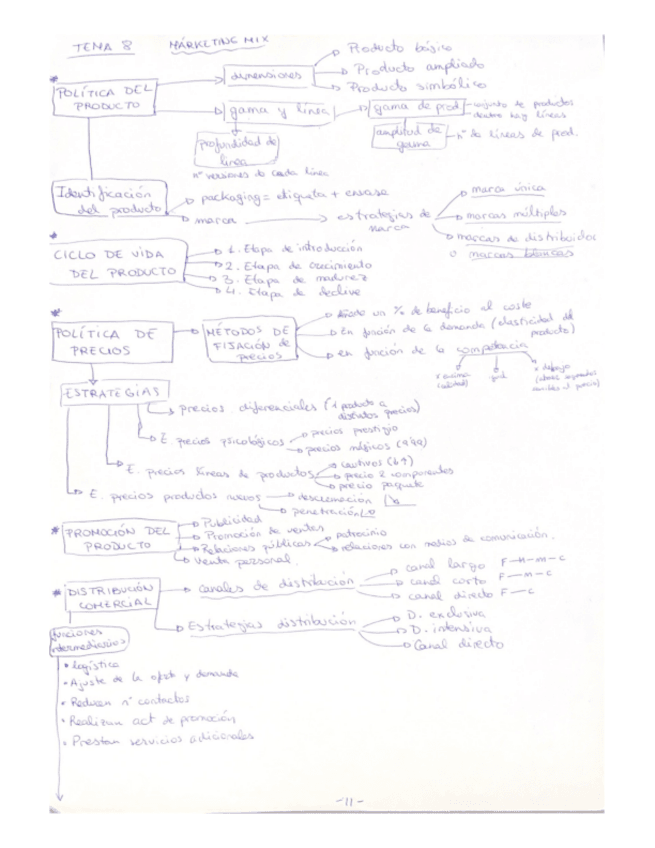 TEMA 8 MÁRKETING MIX
* POLÍTICA DEL PRODUCTO
dimensiones
Producto básico
Producto ampliado
Producto simbólico
gama y línea
gama de prod
conjunto de productos
dentro hay líneas
amplitud de gama
nº de líneas de prod.
profundidad de línea
nº versiones de cada línea
Identificación del producto
packaging = etiqueta + envase
marca
estrategias de marca
marca única
marcas múltiples
marcas de distribuidor
o marcas blancas
* CICLO DE VIDA DEL PRODUCTO
1. Etapa de introducción
2. Etapa de crecimiento
3. Etapa de madurez
4. Etapa de declive
* POLÍTICA DE PRECIOS
MÉTODOS DE FIJACIÓN de precios
Añade un % de beneficio al coste
En función de la demanda (elasticidad del producto)
en función de la competencia
x encima (calidad)
x debajo
ESTRATEGIAS
precios diferenciales (1 producto a distintos precios)
E. precios psicológicos
precios prestigio
precios mágicos (9'99)
E. precios líneas de productos
cautivos
precio 2 componentes
precio paquete
E. precios productos nuevos
descremación
penetración
* PROMOCIÓN DEL PRODUCTO
Publicidad
Promoción de ventas
Relaciones públicas
patrocinio
relaciones con medios de comunicación.
Venta personal.
* DISTRIBUCIÓN COMERCIAL
canales de distribución
canal largo F-M-m-C
canal corto F-m-C
canal directo F-C
Estrategias distribución
D. exclusiva
D. intensiva
Canal directo
funciones intermediarios
• logística
• Ajuste de la ofert y demanda
• Reducen nº contactos
• Realizan act de promoción
• Prestan servicios adicionales
-11-